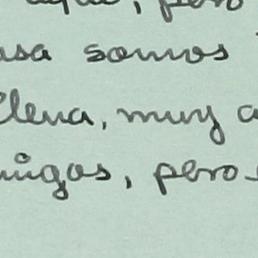 , pero
usa somos
Elena, muy a
migos, pero